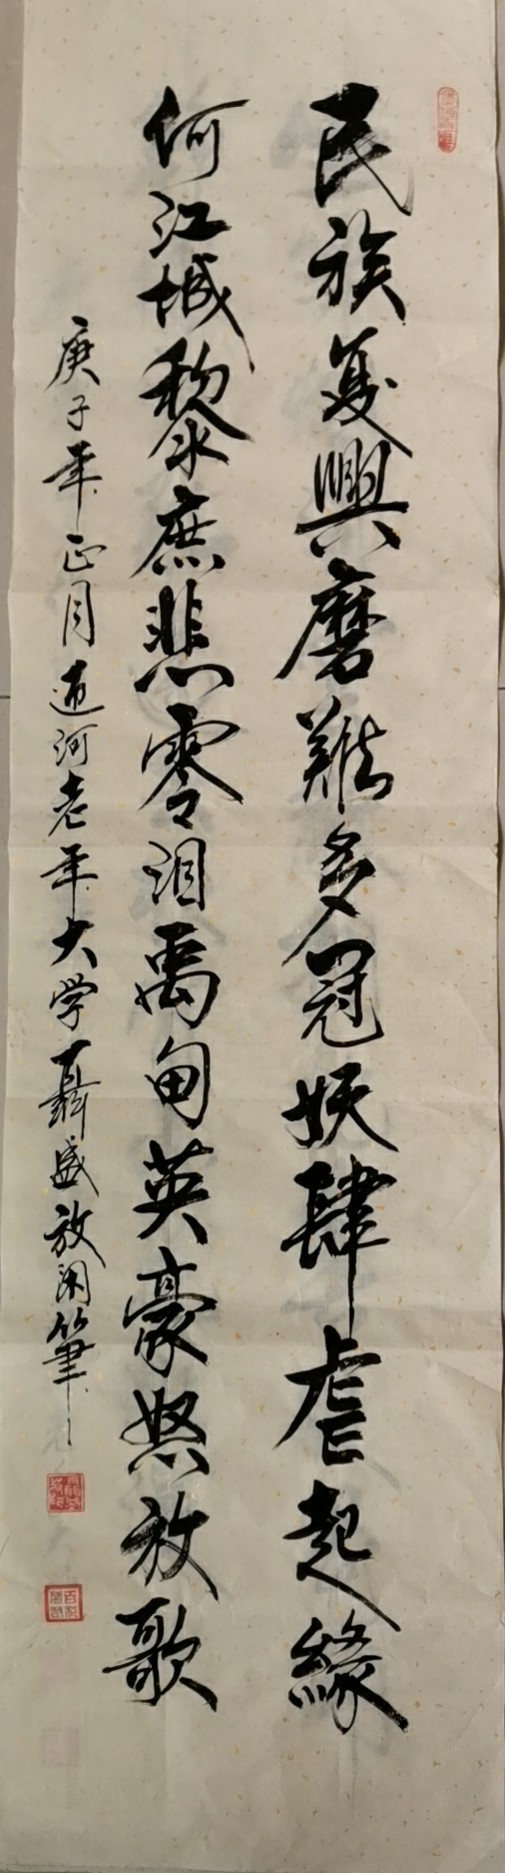 民族复興磨難多冠妖肆虐起緣
何江城黎庶悲零泪禹甸英豪怒放歌
庚子年正月通河老年大学聶盛放闲筆